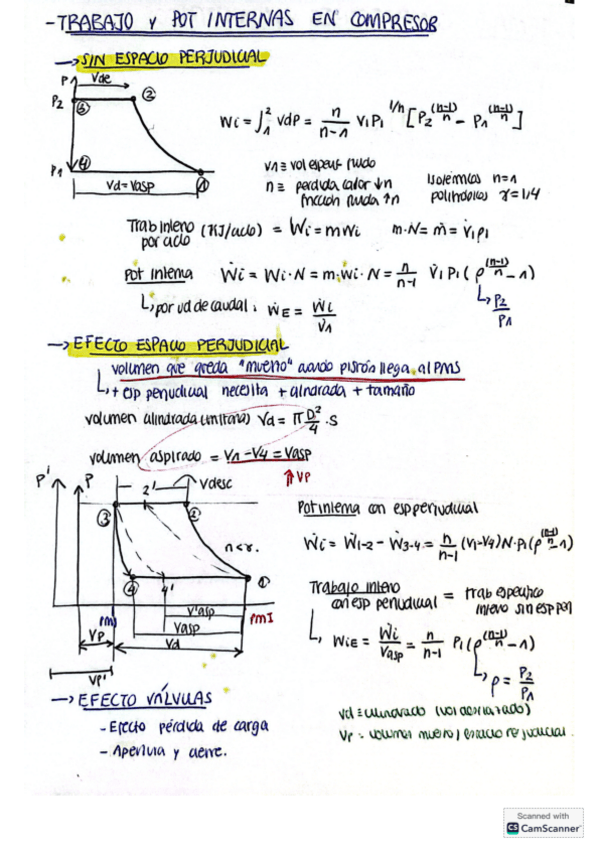 - TRABAJO y POT INTERNAS EN COMPRESOR
→ SIN ESPACIO PERJUDICIAL
P Vde
P2 ③ ②
P1 ④ ①
Vd=Vasp
Wi = ∫₁² VdP = n/(n-1) V1P1^(1/n) [P2^((n-1)/n) - P1^((n-1)/n)]
n ≡ perdida calor ↓n
fricción fluido ↑n
Isotérmicos n=1
γ=1,4
Trab interno (KJ/ciclo) = Wi = mwi m·N = ṁ = V̇1ρ1
por ciclo
Pot interna Ẇi = Wi·N = m·wi·N = n/(n-1) V̇1P1(ρ^((n-1)/n) - 1)
↳ P2/P1
↳ por ud de caudal: ẆE = Ẇi/V̇1
→ EFECTO ESPACIO PERJUDICIAL
volumen que queda "muerto" cuando pistón llega al PMS
↳ + esp perjudicial necesita + cilindrada + tamaño
volumen cilindrada (unitaria) Vd = π D²/4 · S
volumen aspirado = V1 - V4 = Vasp
↑VP
P' P 2' Vdesc
③ ②
n<γ.
④ 4' ①
V'asp
Vasp
Vd
PMI
VP
VP'
Pot interna con esp perjudicial
Ẇi = Ẇ1-2 - Ẇ3-4 = n/(n-1) (V1-V4)N·P1(ρ^((n-1)/n) - 1)
Trabajo interno con esp perjudicial = trab especifico interno sin esp perj
↳ WiE = Wi/Vasp = n/(n-1) P1(ρ^((n-1)/n) - 1)
↳ ρ = P2/P1
→ EFECTO VÁLVULAS
- Efecto pérdida de carga
- Apertura y cierre.
Vd ≡ cilindrada (vol desplazado)
Vp = volumen muerto / espacio perjudicial.
Scanned with
CS CamScanner